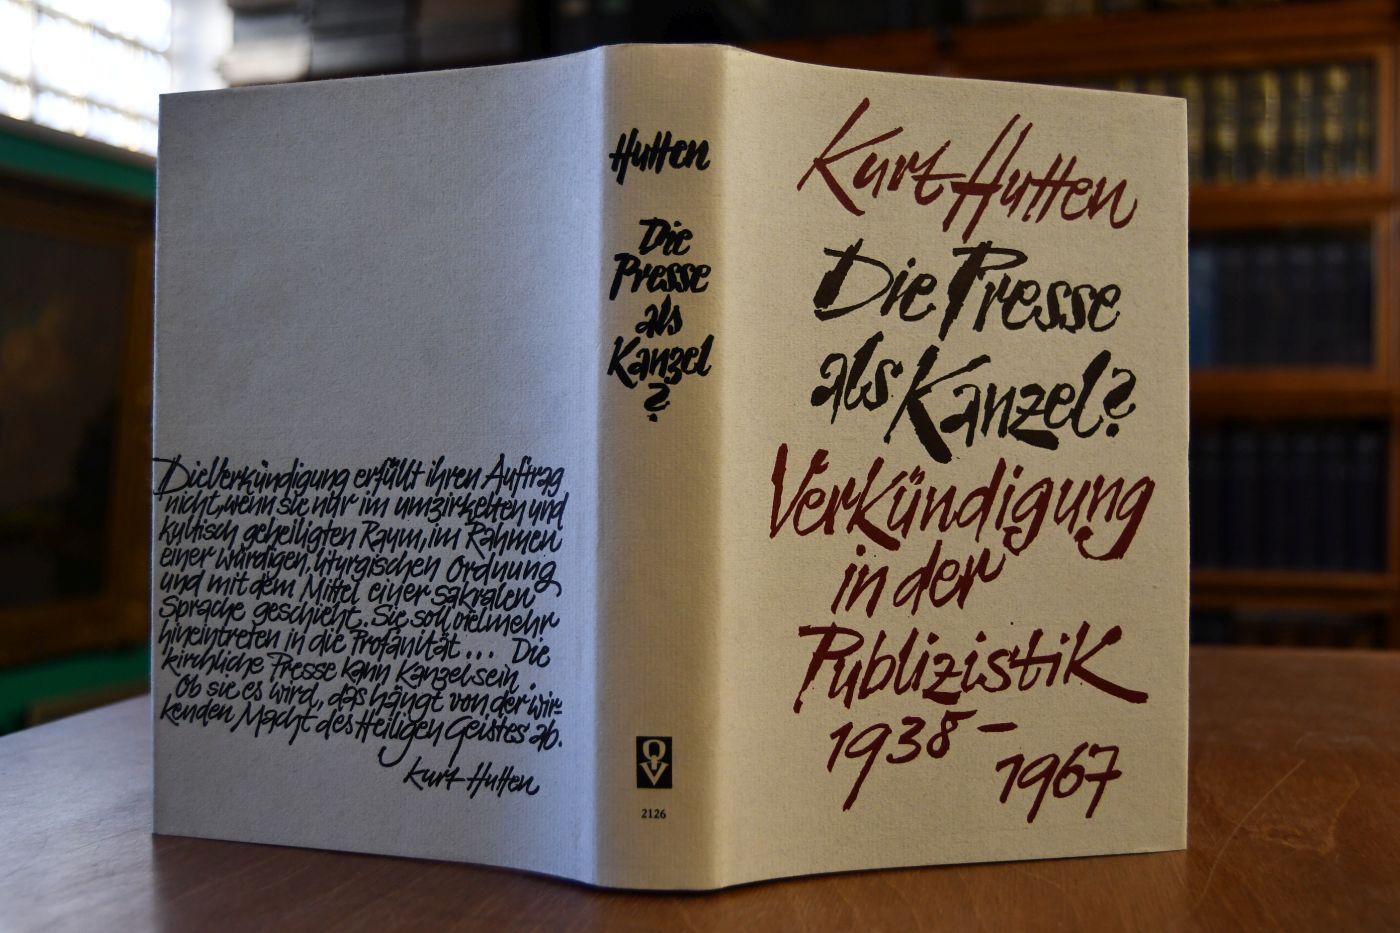 Die Verkündigung erfüllt ihren Auftrag
nicht, wenn sie nur im umzirkelten und
kultisch geheiligten Raum, im Rahmen
einer würdigen, liturgischen Ordnung
und mit dem Mittel einer sakralen
Sprache geschieht. Sie soll vielmehr
hineintreten in die Profanität... Die
kirchliche Presse kann Kanzel sein.
Ob sie es wird, das hängt von der wir-
kenden Macht des Heiligen Geistes ab.
Kurt Hutten
Hutten
Die
Presse
als
Kanzel
?
2126
Kurt Hutten
Die Presse
als Kanzel?
Verkündigung
in der
Publizistik
1938-
1967